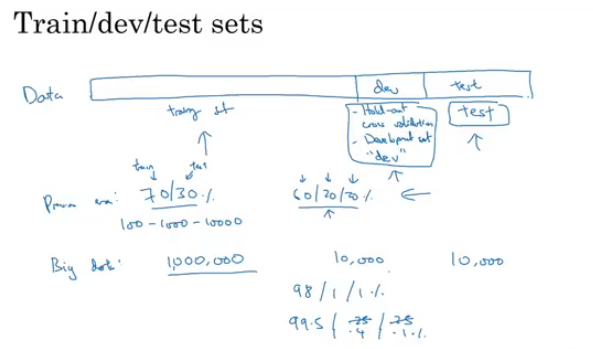 Train/dev/test sets
Data
dev
test
training set
- Hold-out
cross validation
- Development set
"dev"
test
train test
Previous era: 70/30% 60/20/20%
100-1000-10000
Big data: 1,000,000 10,000 10,000
98/1/1%
99.5/.25/.25
.4/.1%